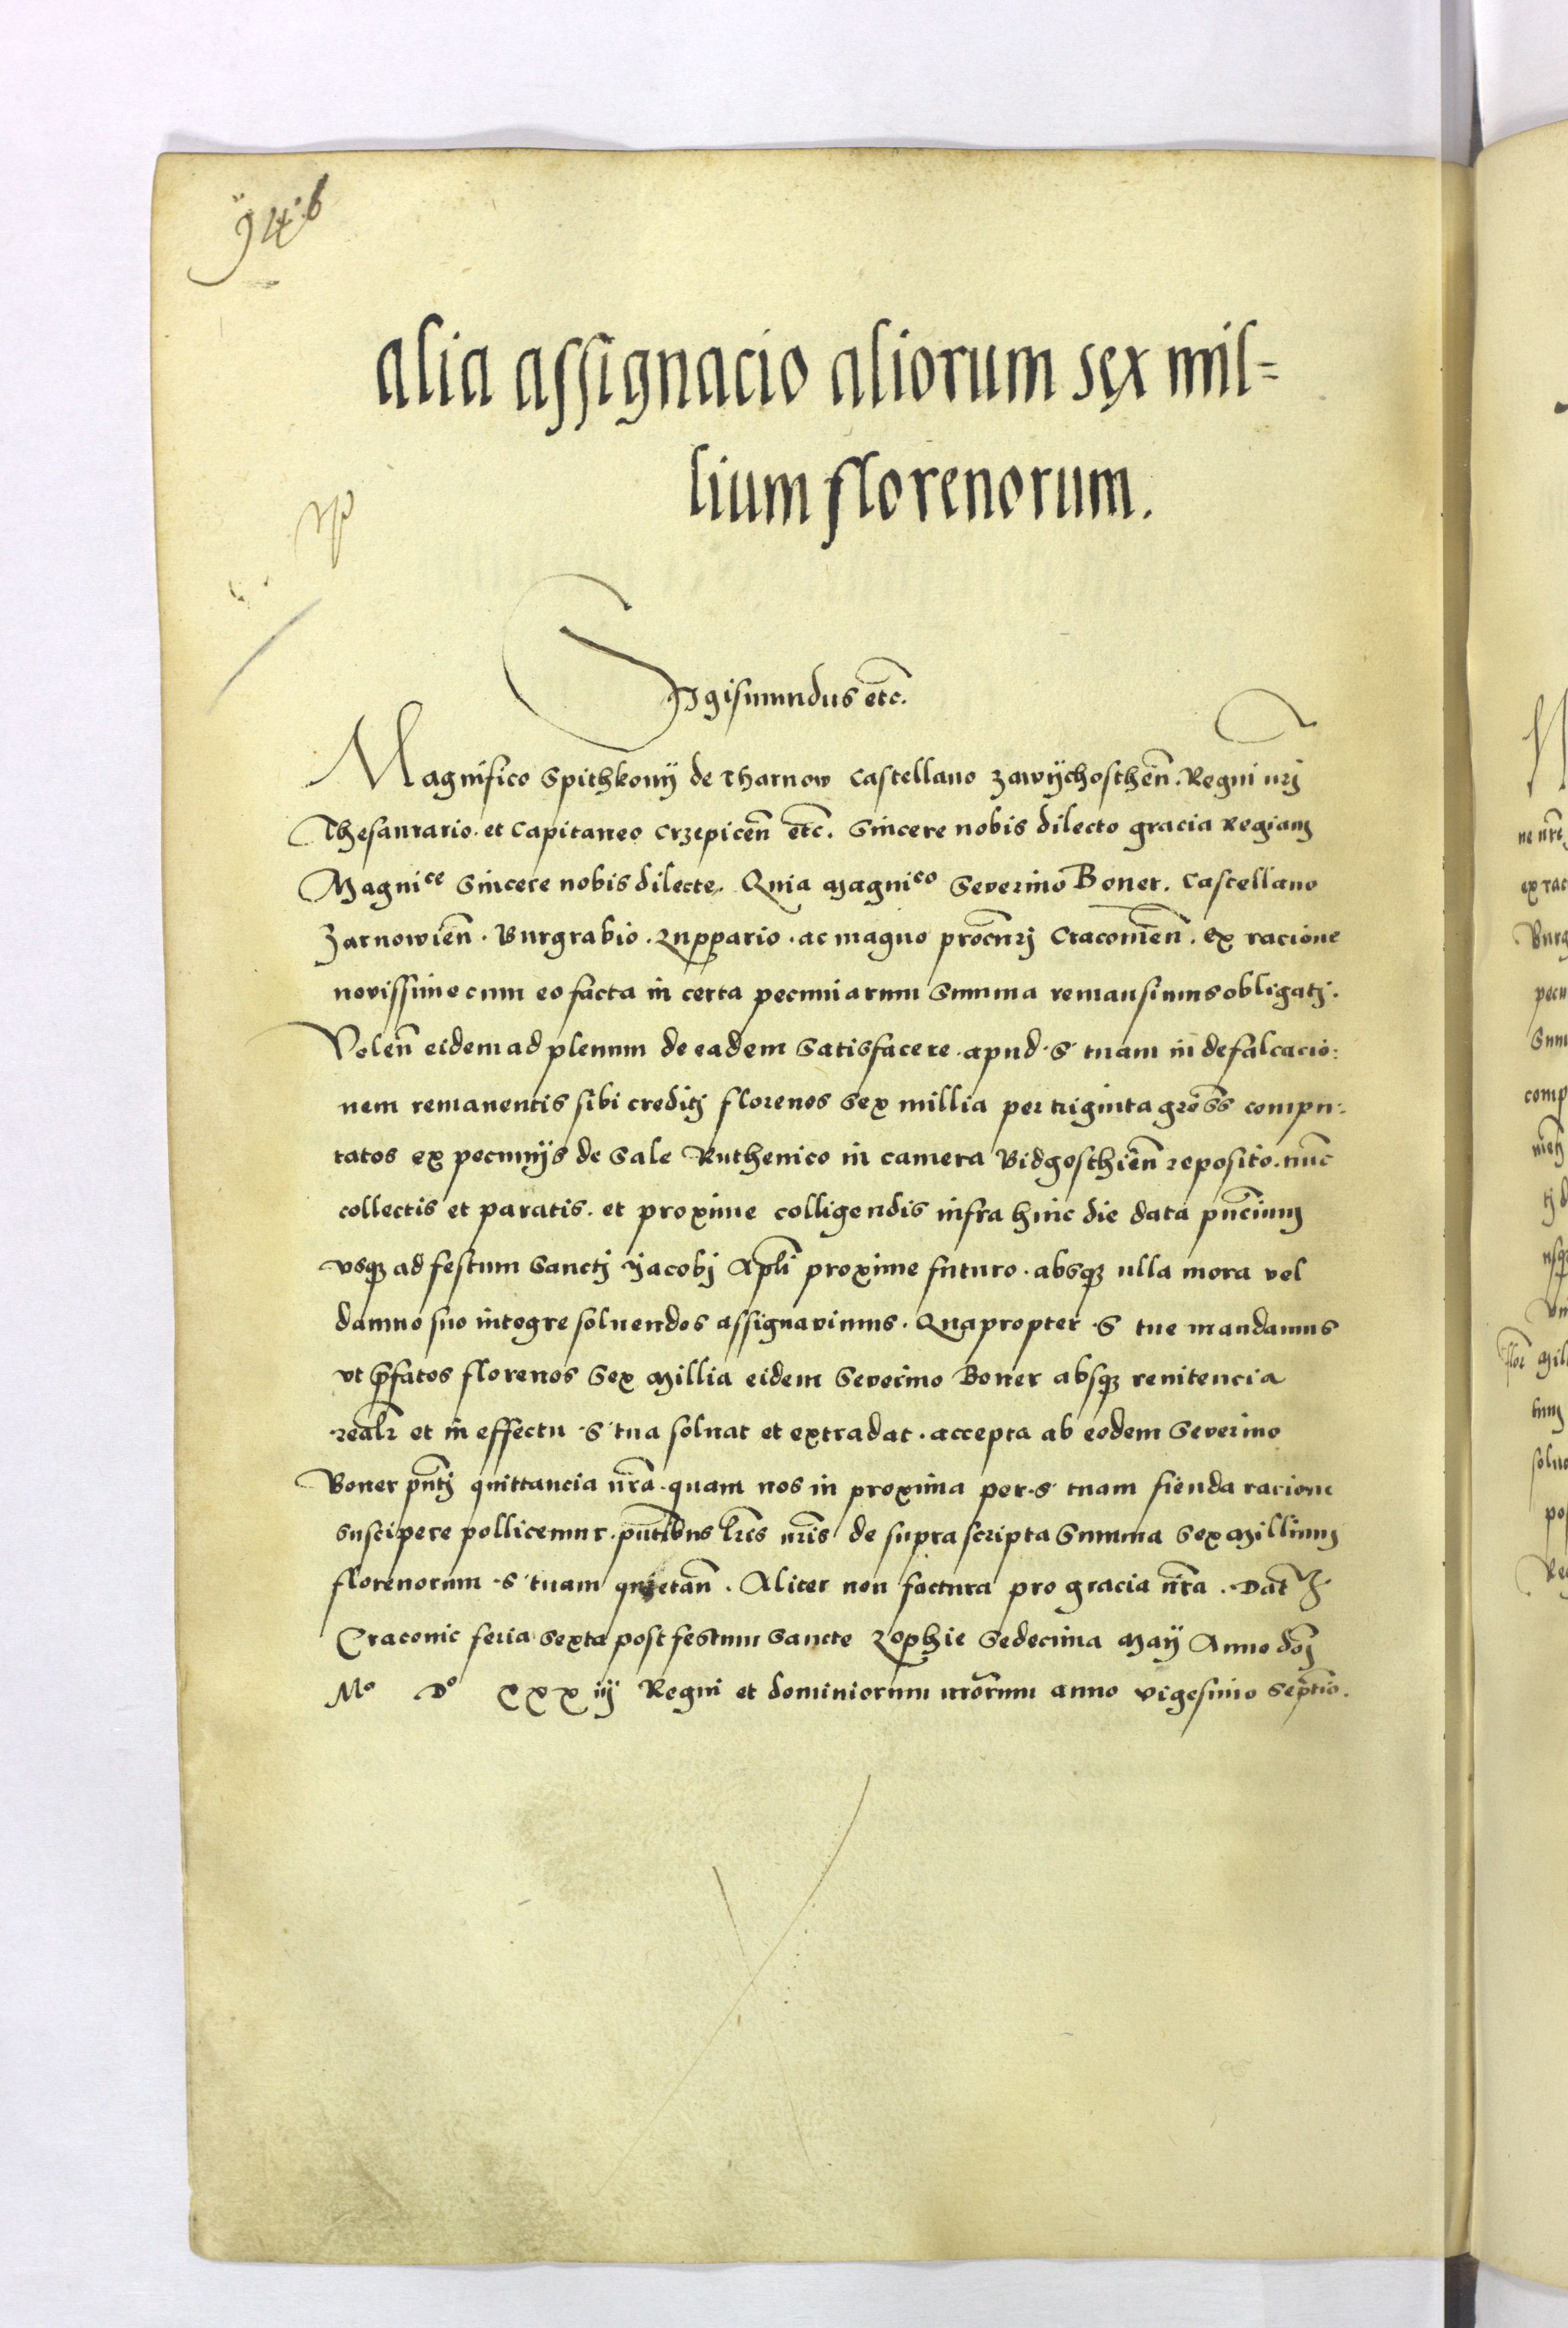 94·b
alia assignacio aliorum sex mil=
lium florenorum.
Sigismundus etc̄.
Magnifico Spithkonij de Tharnow Castellano Zawÿchosthen̄. Regni nrj
Thesaurario. et Capitaneo Crzepicen̄ etc̄. Sincere nobis dilecto gracia Regiam
Magnice Sincere nobis dilecte. Quia Magnico Severino Boner. Castellano
Zarnowien̄. Burgrabio. Zuppario. ac magno procn̄rj Cracouien̄. ex racione
novissime cum eo facta in certa pecuniarum Summa remansimus obligatj.
Volen̄ eidem ad plenum de eadem Satisfacere. apud ·S· tuam in defalcacio:
nem remanentis sibi creditj florenos Sex millia per triginta gros̄s compu:
tatos ex pecunijs de Sale Ruthenico in camera Bidgosthien̄ reposito. nūc
collectis et paratis. et proxime colligendis infra hinc die data pn̄cium
vsqz ad festum Sanctj Jacobj Apl̄i proxime futuro. absqz ulla mora vel
damno suo integre soluendos assignavimus. Quapropter ·S· tue mandamus
vt p̄fatos florenos Sex Millia eidem Severino Boner absqz renitencia
realr̄ et in effectu ·S· tua soluat et extradat. accepta ab eodem Severino
Boner pn̄tj quittancia nr̄a. quam nos in proxima per ·S· tuam fienda racione
suscipere pollicemur. pn̄tibus lr̄is nr̄is de suprascripta Summa Sex Millium
florenorum ·S· tuam quietan̄. Aliter non factura pro gracia nr̄a. Dat̄
Cracouie feria Sexta post festum Sancte Zophie Sedecima Maij Anno dn̄j
Mo Do XXX iij Regni et dominiorum nr̄orum anno vigesimo Septīo.